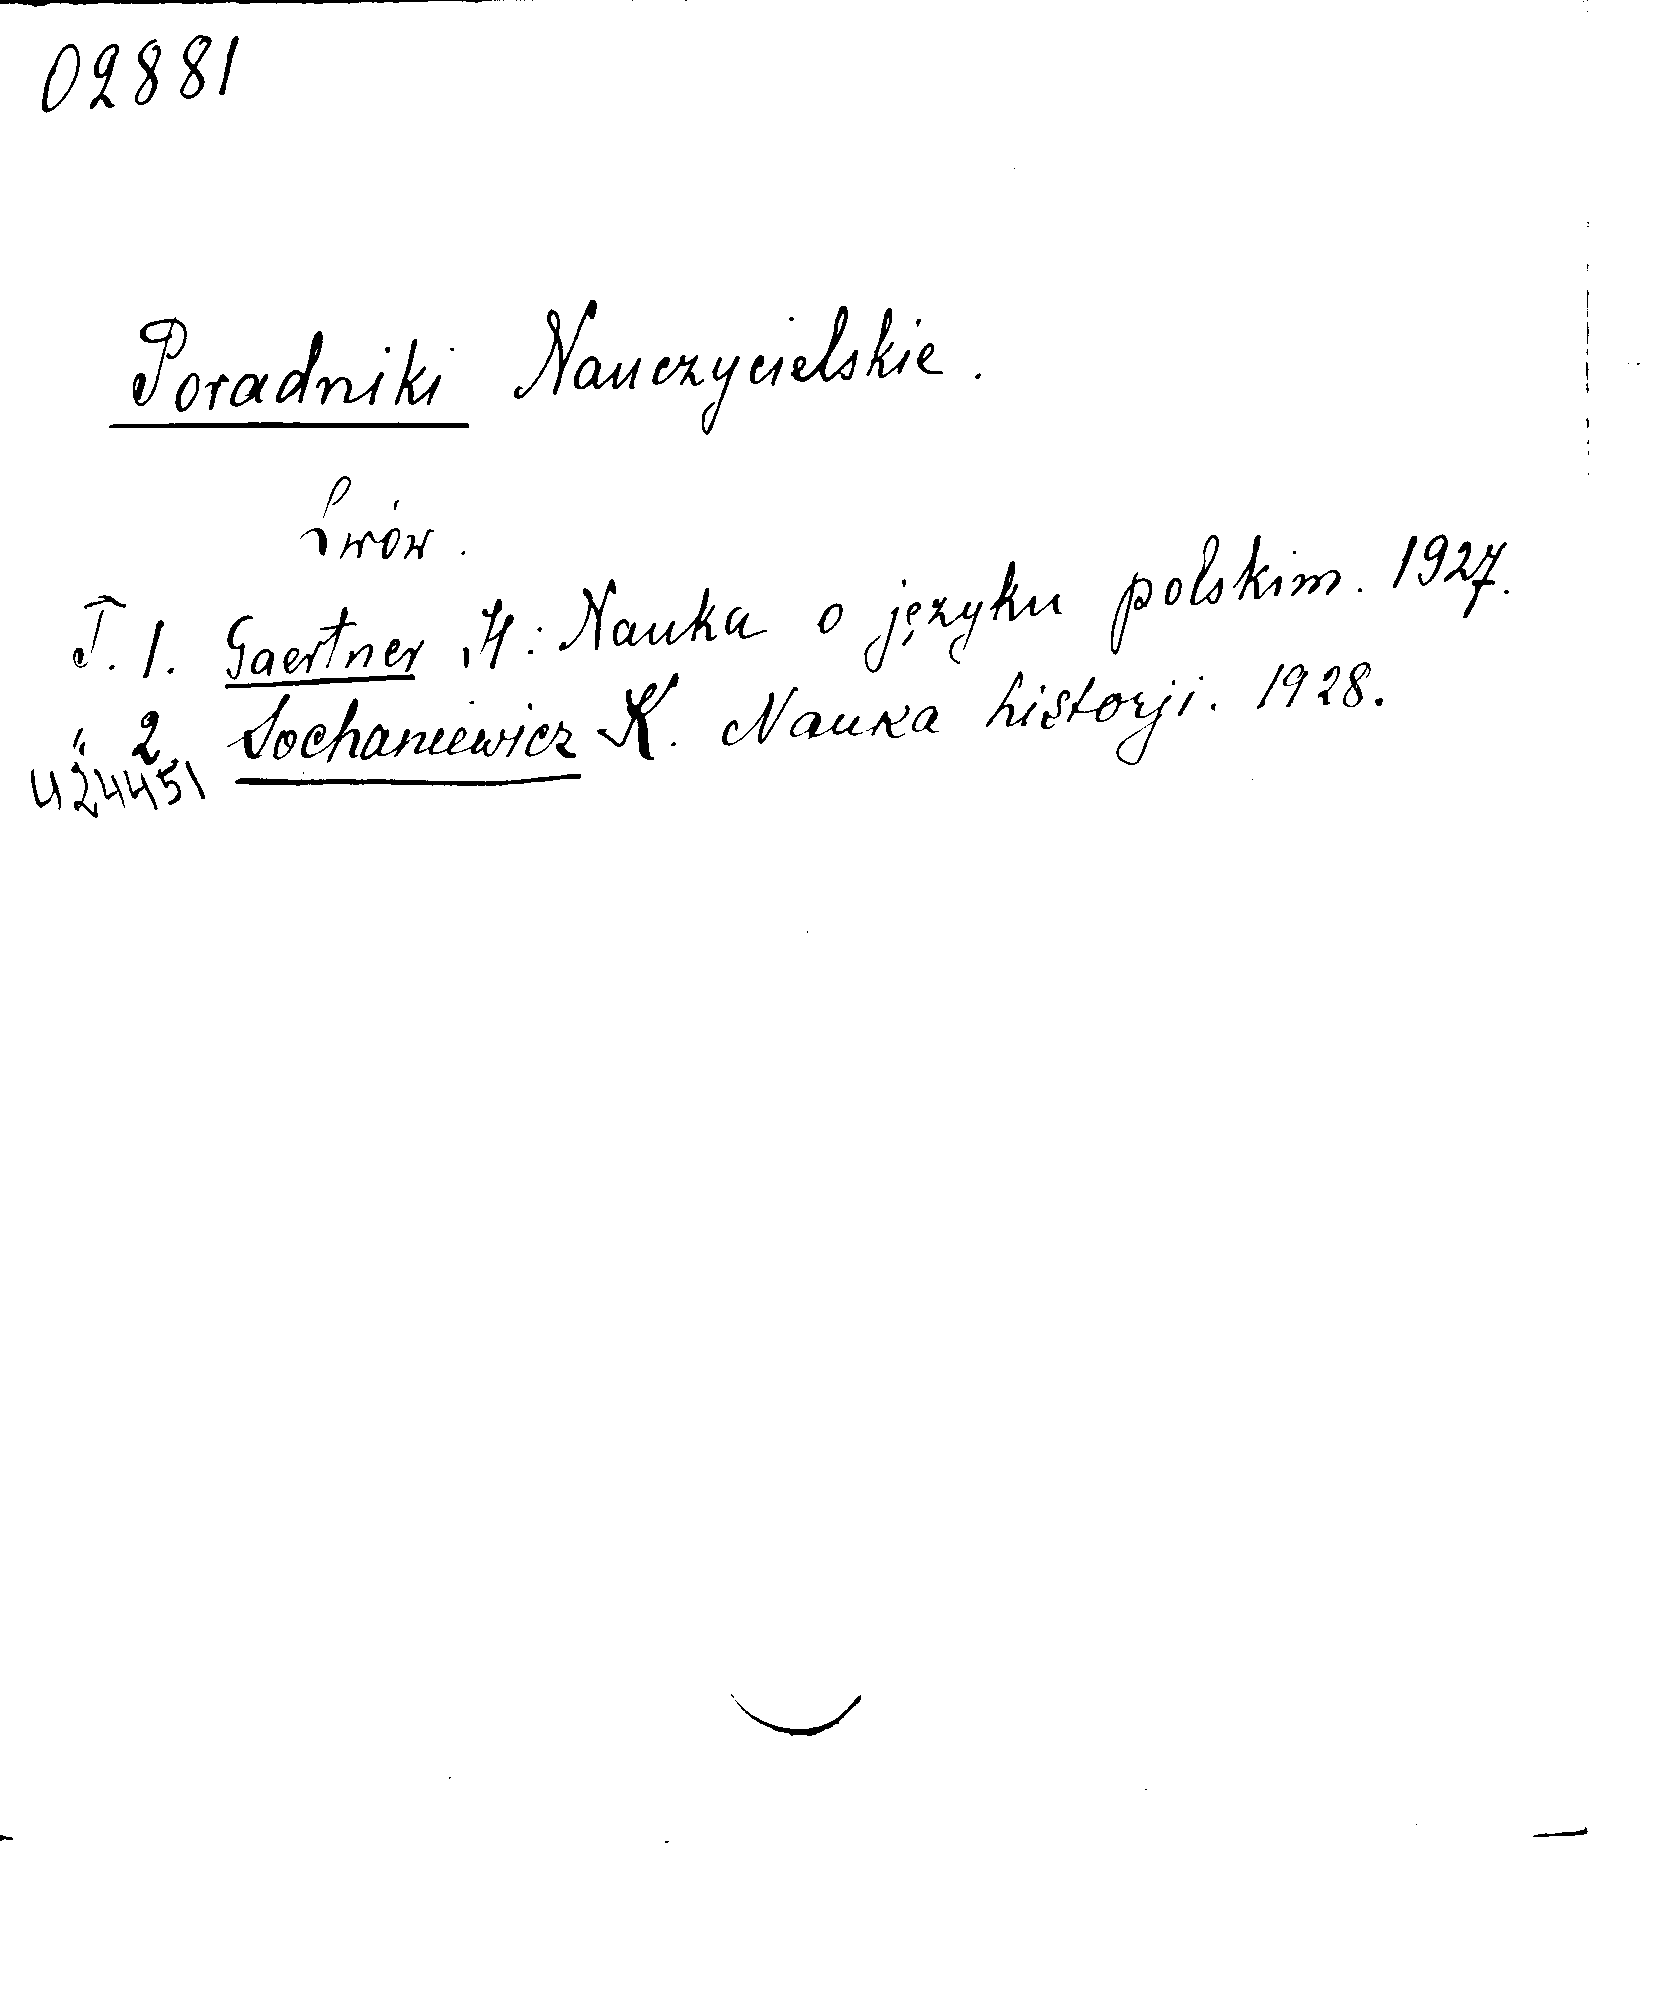 02881
Poradniki Nauczycielskie.
Lwów.
T. 1. Gaertner H: Nauka o języku polskim. 1927.
" 2 Sochaniewicz K. Nauka historji. 1928.
424451